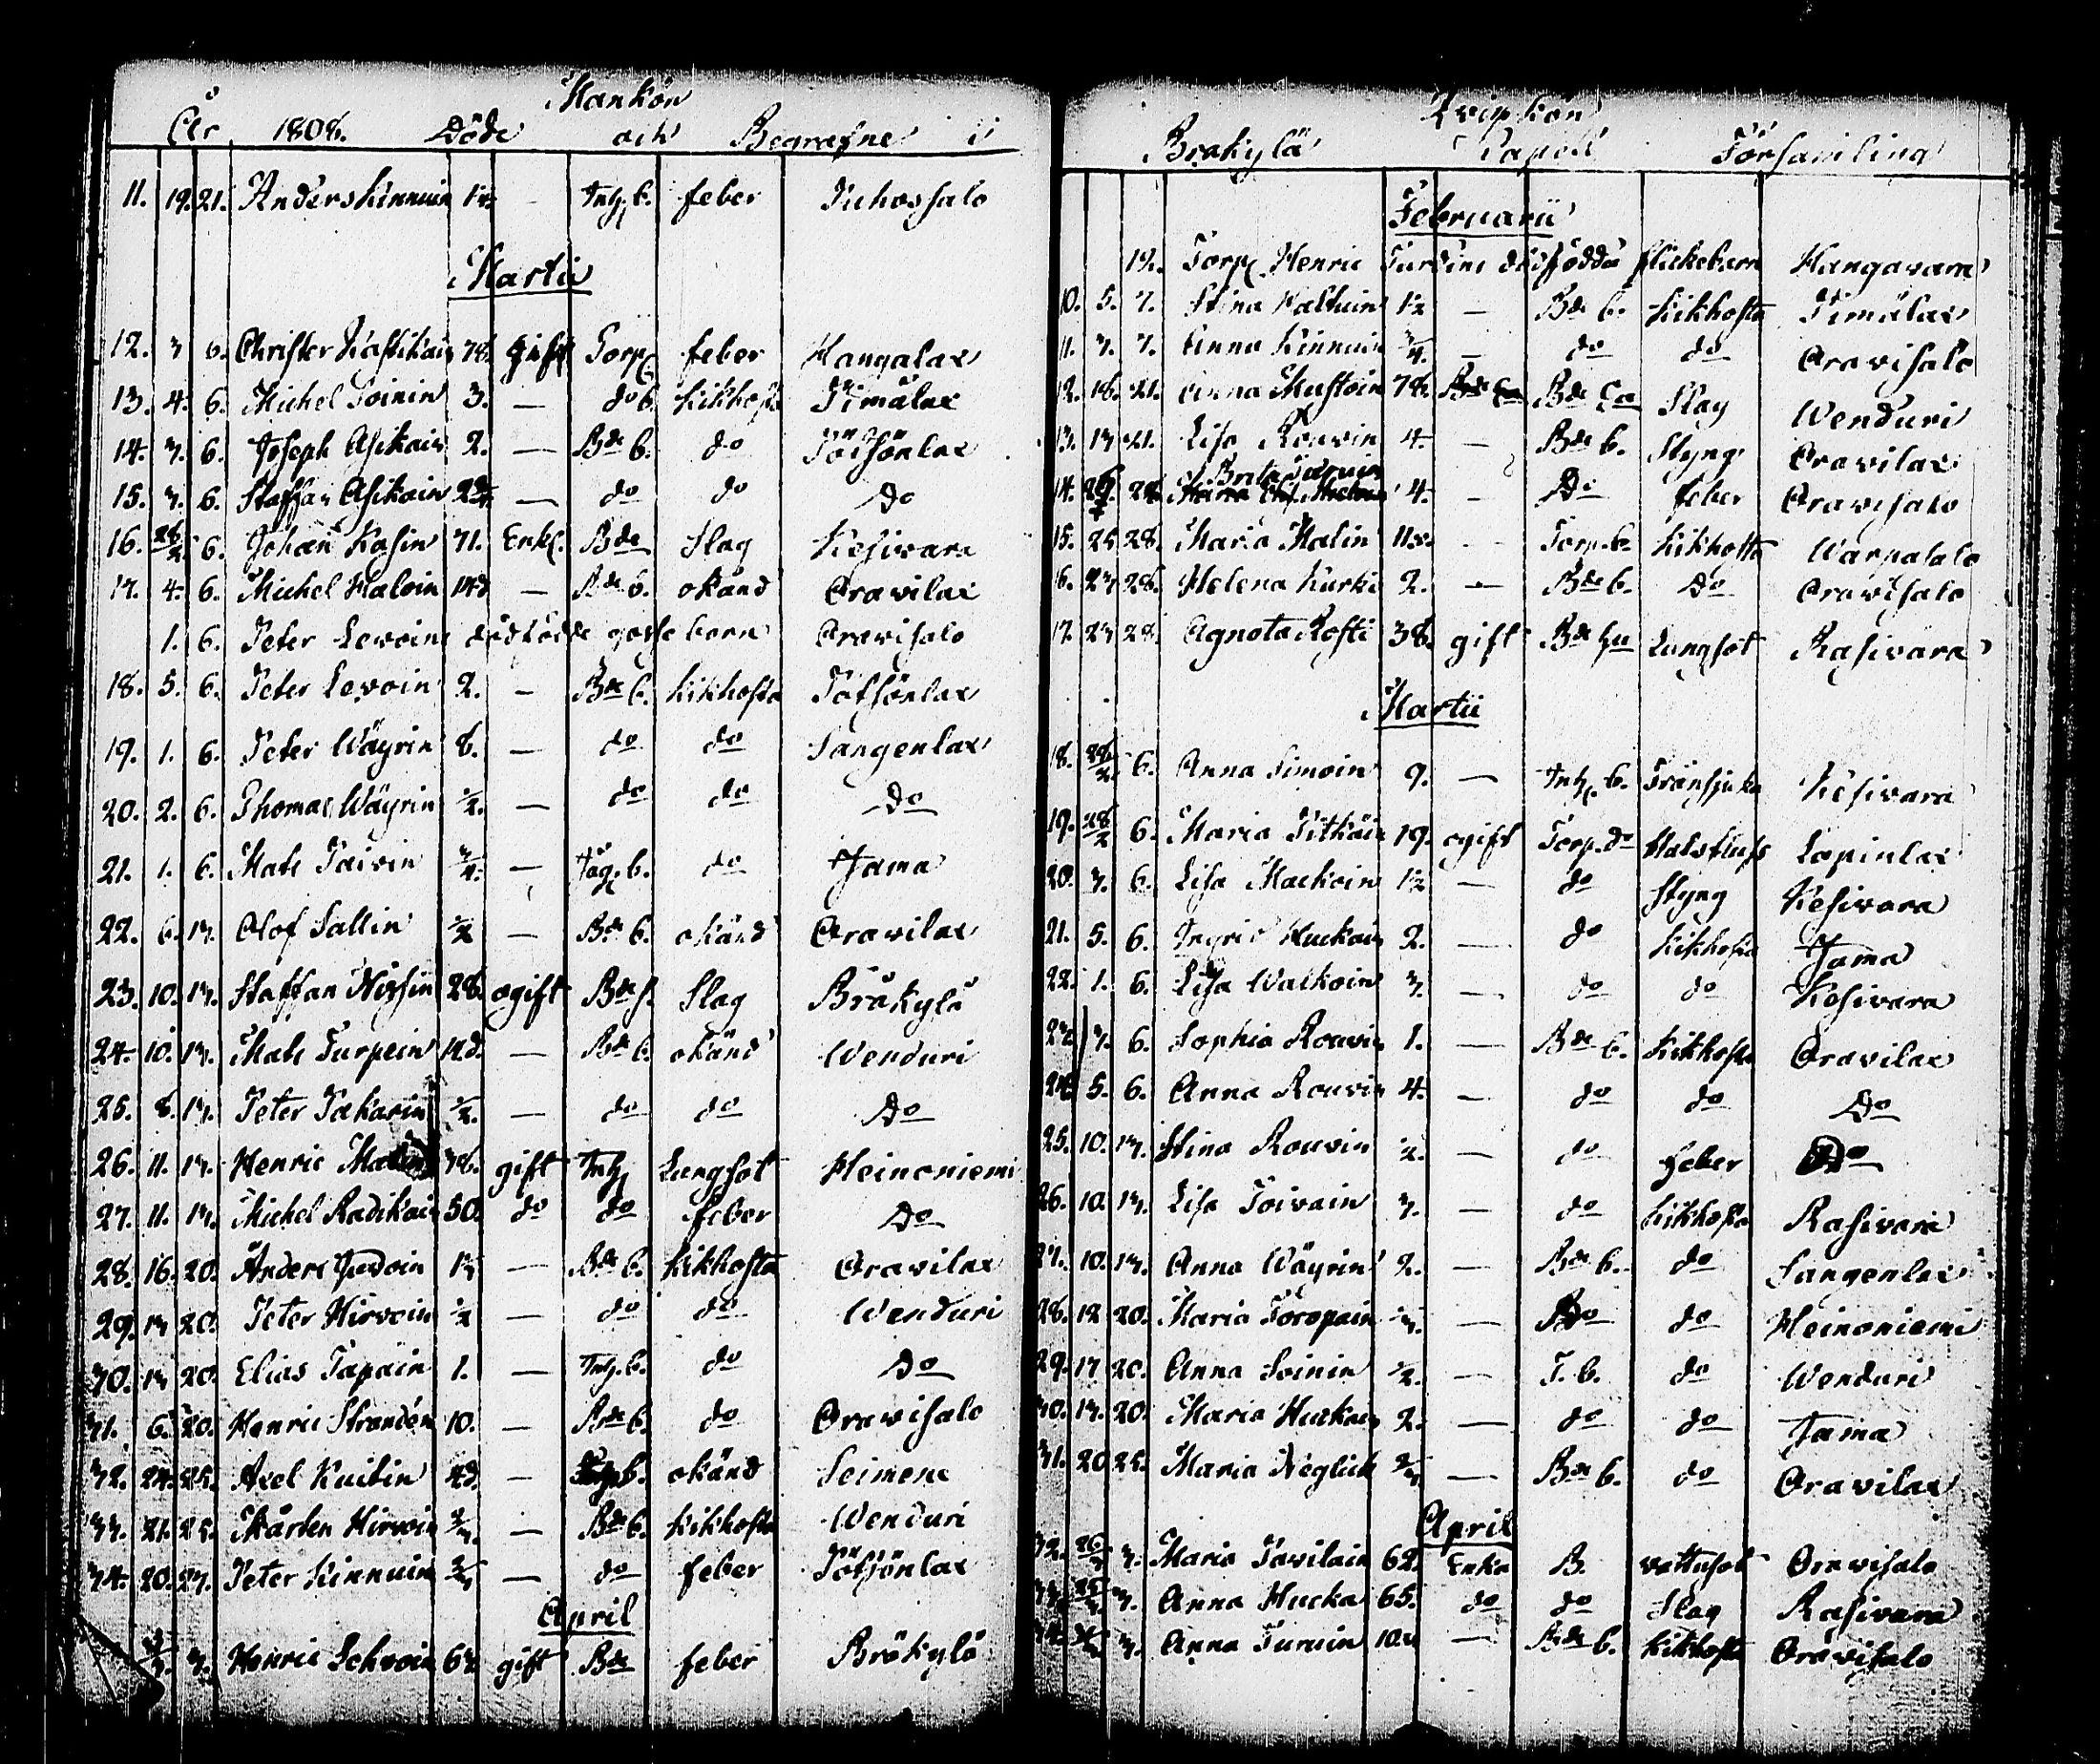 Mankön
År 1808. Döde och Begrafne i
11. 19. 21. Anders Kinnuin — Inh. b. feber Puhossalo
Martii
12. 3 6. Christer Kastikain 78. gift Torp. feber Hangalax
13. 4. 6. Michel Soinin 3. — do b. kikhosta Pimälax
14. 3. 6. Joseph Asikain 2. — Bde b. do Pötsönlax
15. 3. 6. Staffan Asikain — do do Do
16. 28/2 6. Johan Kasin 71. Enkl. Bde Slag Kesivara
17. 4. 6. Michel Haloin 14d — Bde b. okänd Oravilax
1. 6. Peter Levoins dödfödde gosse barn Oravisalo
18. 5. 6. Peter Levoin 2. — Bde b. kikhosta Pötsönlax
19. 1. 6. Peter Wäyrin 8. — do do Sangenlax
20. 2. 6. Thomas Wäyrin 1/2. — do do Do
21. 1. 6. Mats Paivin 3/4. — b. do Jama
22. 6. 13. Olof Sallin 1/2 — Bde b. okänd Oravilax
23. 10. 13. Staffan Nissin 28. ogift Bde s. Slag Bräkylä
24. 10. 13. Mats Turpein 14d. — Bde b. okänd Wenduri
25. 8. 13. Peter Pakarin 1/2. — do do Do
26. 11. 13. Henric 36. gift Inh Lungsot Heinoniemi
27. 11. 13. Michel Radikain 50. do do feber Do
28. 16. 20. Anders — Bde b. kikhosta Oravilax
29. 13 20. Peter Hirvoin 1/2 — do do Wenduri
30. 13 20. Elias Papain 1. — Inh. b. do Do
31. 6. 20. Henric Strandén 10. — Bde b. do Oravisalo
32. 24. 25. Axel Kuitin 4d. — b. okänd Seimene
33. 21. 25. Mårten Hirvoin — Bde b. kikhosta Wenduri
34. 20. 27. Peter Kinnuin — do feber Pötsönlax
April
3. Henric Lehvoin 63 gift Bde feber Bräkylä
Qvinkön
Bräkylä Capell Församling
Februarii
14. Torp. Henric Turdins dödfödda flickebarn Hangavara
10. 5. 7. Stina Haltuin 1 1/2 — Bde b. kikhosta Pimälax
11. 3. 7. Anna Kinnuin 3/4. — do do Oravisalo
12. 18. 21. Anna Mustoin 78. Bde Ea Slag Wenduri
13. 13 21. Lisa Rouvin 4. — Bde b. Styng Oravilax
14. 28. 4. — Do feber Oravisalo
15. 25 28. Maria Malin 11v. — Torp. b. kikhosta Warpasalo
16. 23 28. Helena Kurki 2. — Bde b. Do Oravisalo
17. 23 28. Agneta Kosti 38. gift Bde hu Lungsot Rasivara
Martii
18. 28/2 6. Anna Simoin 9. — Inh. b. Transjuka Kesivara
19. 28/2 6. Maria Pitkäin 19. ogift Torp. do Halsfluss Lapinlax
20. 3. 6. Lisa Mackoin 1 1/2 — do Styng Kesivara
21. 5. 6. Ingrid Huckain 2. — do kikhosta Jama
22. 1. 6. Lisa Waikoin 3. — do do Kesivara
23. 3. 6. Sophia Rouvin 1. — Bde b. kikhosta Oravilax
24. 5. 6. Anna Rouvin 4. — do do Do
25. 10. 13. Stina Rouvin 1/2. — do feber Do
26. 10. 13. Lisa Toivain 3. — do kikhosta Rasivara
27. 10. 13. Anna Wäyrin 2. — Bde b. do Sangenlax
28. 12 20. Maria Toropain 1/3. — Do do Heinoniemi
29. 17 20. Anna Soinin 1/2. — T. b. do Wenduri
30. 13. 20. Maria Huckain 2. — do do Jama
31. 20 25. Maria Neglick — Bde b. do Oravilax
April
32. 26/3 3. Maria Pavilain 62. Enka B. vattusot Oravisalo
33. 3. Anna Hucka 65. do do Slag Rasivara
34. 3. Anna Turuin 10v — Bde b. kikhosta Oravisalo